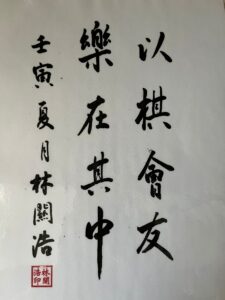 以棋會友
樂在其中
壬寅夏月林關浩
林關
浩印